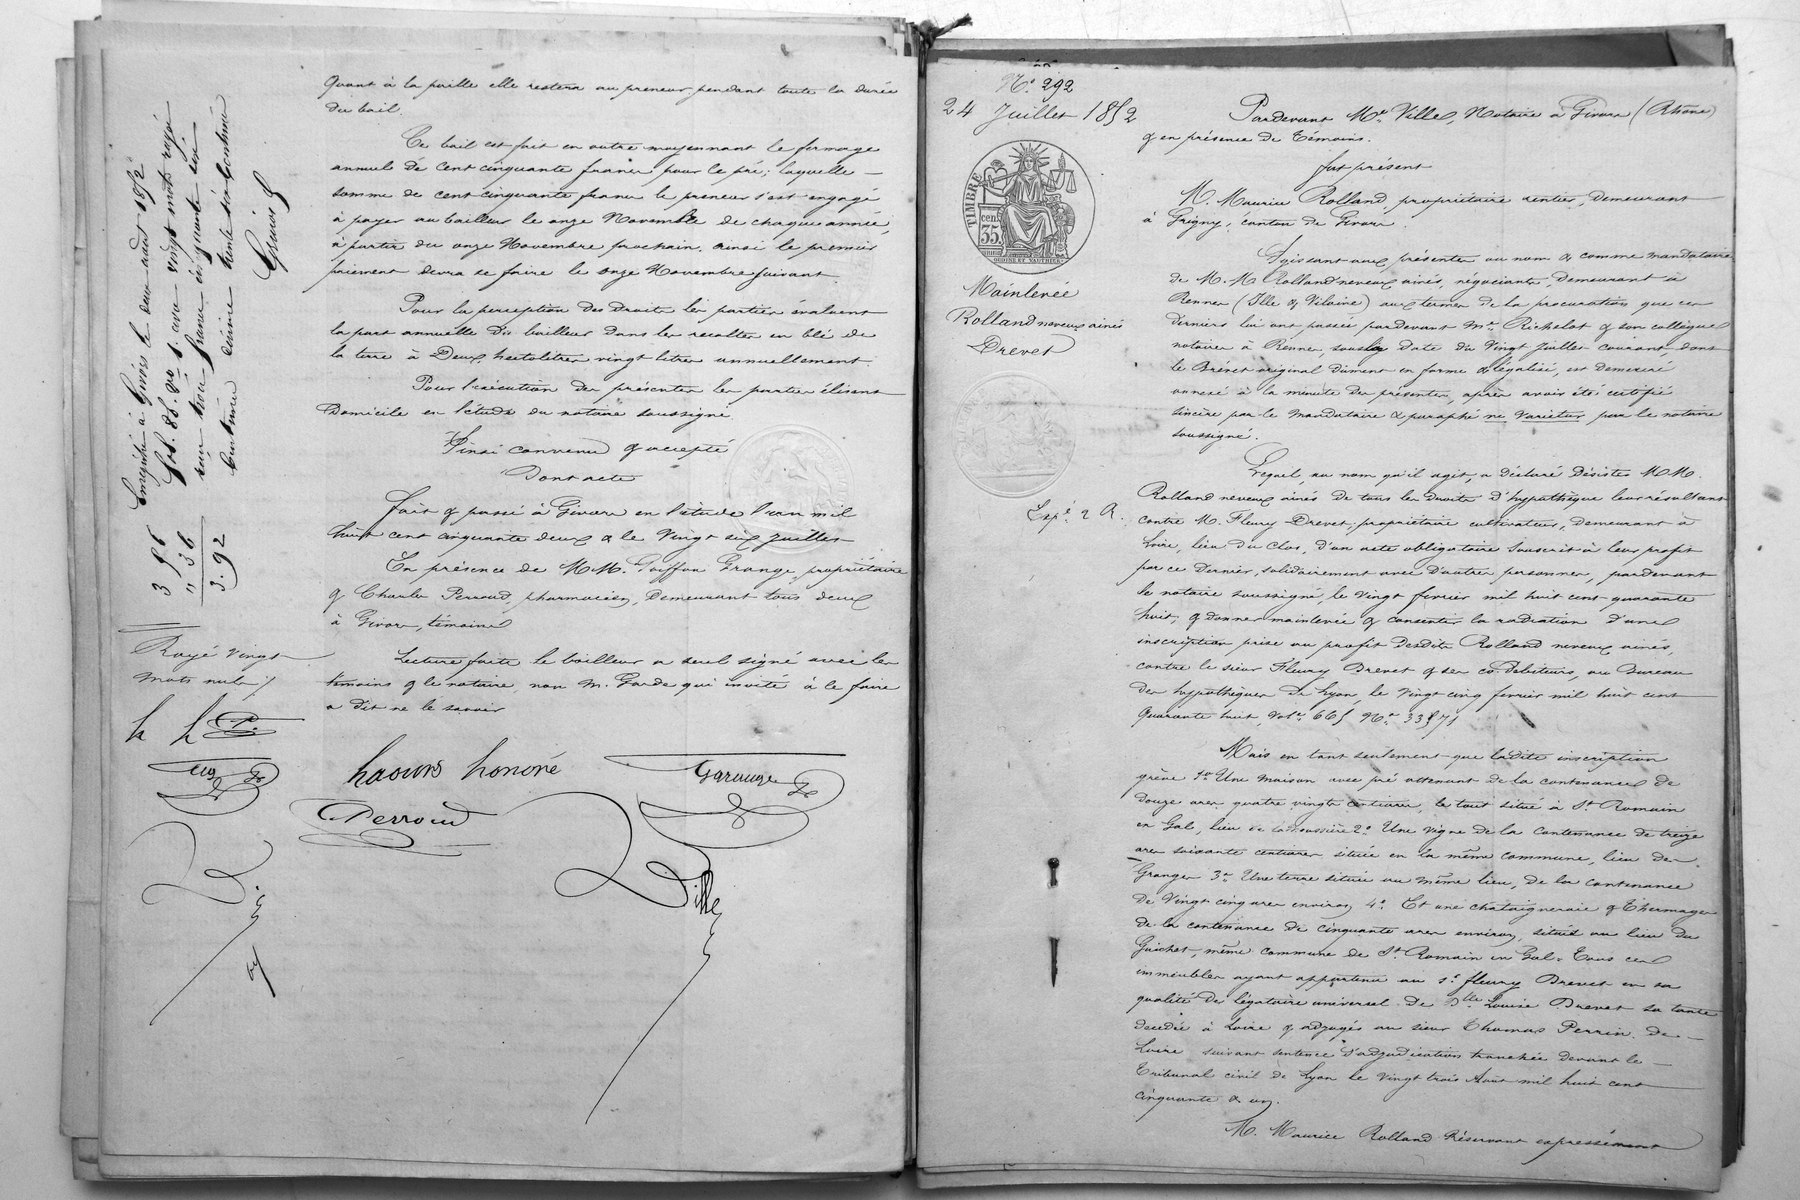 Quant à la paille elle restera au preneur pendant toute la durée
du bail.
Ce bail est fait en outre moyennant le fermage
annuel de cent cinquante francs pour le pré; laquelle
somme de cent cinquante francs le preneur s'est engagé
à payer au bailleur le onze Novembre de chaque année,
à partir du onze Novembre prochain, ainsi le premier
paiement devra se faire le onze Novembre suivant.
Pour la perception des Droits les parties évaluent
la part annuelle du bailleur dans les recoltes en blé de
la terre à Deux hectolitres vingt litres annuellement.
Pour l'exécution des présentes les parties élisent
Domicile en l'étude du notaire soussigné
Ainsi convenu & accepté
Dont acte
Fait & passé à Givors en l'étude l'an mil
huit cent cinquante deux & le Vingt six Juillet
En présence de M.M. Goiffon Grange, propriétaire
& Charles Perroud, pharmacien, Demeurant tous deux
à Givors, témoins
Lecture faite le bailleur a seul signé avec les
témoins & le notaire, non M. Garde qui invité à le faire
a dit ne le savoir
Enregistré à Givors le deux août 1852
vingt mots rayés
3. 92
Rayé vingt
mots nuls
honoré
Perroud
Ville
N.º 292
24 Juillet 1852
TIMBRE
35
cent
Mainlevée
Rolland neveux ainés
Drevet
Exp.é 2 R.
Pardevant M.e Ville, Notaire à Givors (Rhône)
& en présence de Témoins.
fut présent
M. Maurice Rolland, propriétaire rentier, Demeurant
à Grigny, canton de Givors.
Agissant aux présentes au nom & comme mandataire
de M.M. Rolland neveux ainés, négociants, Demeurant à
Rennes (Ille & Vilaine) aux termes de la procuration que ces
derniers lui ont passée pardevant M.e Richelot & son collègue
notaires à Rennes, sous la Date du Vingt Juillet courant, dont
le Brévet original Dûment en forme & légalisé, est demeuré
annexé à la minute des présentes, après avoir été certifié
sincère par le mandataire & paraphé ne varietur par le notaire
soussigné.
Lequel, au nom qu'il agit, a déclaré Désister M.M.
Rolland neveux ainés de tous les Droits d'hypothèque leur résultant
contre M. Fleury Drevet, propriétaire cultivateur, Demeurant à
Loire, lieu du Clos, d'un acte obligatoire souscrit à leur profit
par ce Dernier, solidairement avec D'autres personnes, pardevant
le notaire soussigné, le vingt fevrier mil huit cent quarante
huit, & donner mainlevée & consenter la radiation d'une
inscription prise au profit Desdits Rolland neveux ainés,
contre le sieur Fleury Drevet & ses co-débiteurs, au Bureau
Des hypothèques De Lyon, le Vingt cinq fevrier mil huit cent
Quarante huit, vol.e 665 N.º 33571
Mais en tant seulement que ladite inscription
grève 1.º Une maison avec pré attenant de la contenance de
Douze ares quatre vingts centiares, le tout situé à S.t Romain
en Gal, lieu de 2.º Une vigne de la contenance de treize
ares soixante centiares située en la même commune, lieu des
Granges 3.º Une terre située au même lieu, de la contenance
De Vingt cinq ares environ 4.º Et une chataigneraie & Thermages
De la contenance de cinquante ares environ, située au lieu du
Guichet, même commune de S.t Romain en Gal. Tous ces
immeubles ayant appartenu au s.r fleury Drevet en sa
qualité De légataire universel De D.lle Louise Drevet sa tante
decédée à Loire & adjugés au sieur Thomas Perrin, de
Loire suivant sentence D'adjudication tranchée devant le
Tribunal civil de Lyon le Vingt trois Août mil huit cent
cinquante & un.
M. Maurice Rolland Réservant expressément